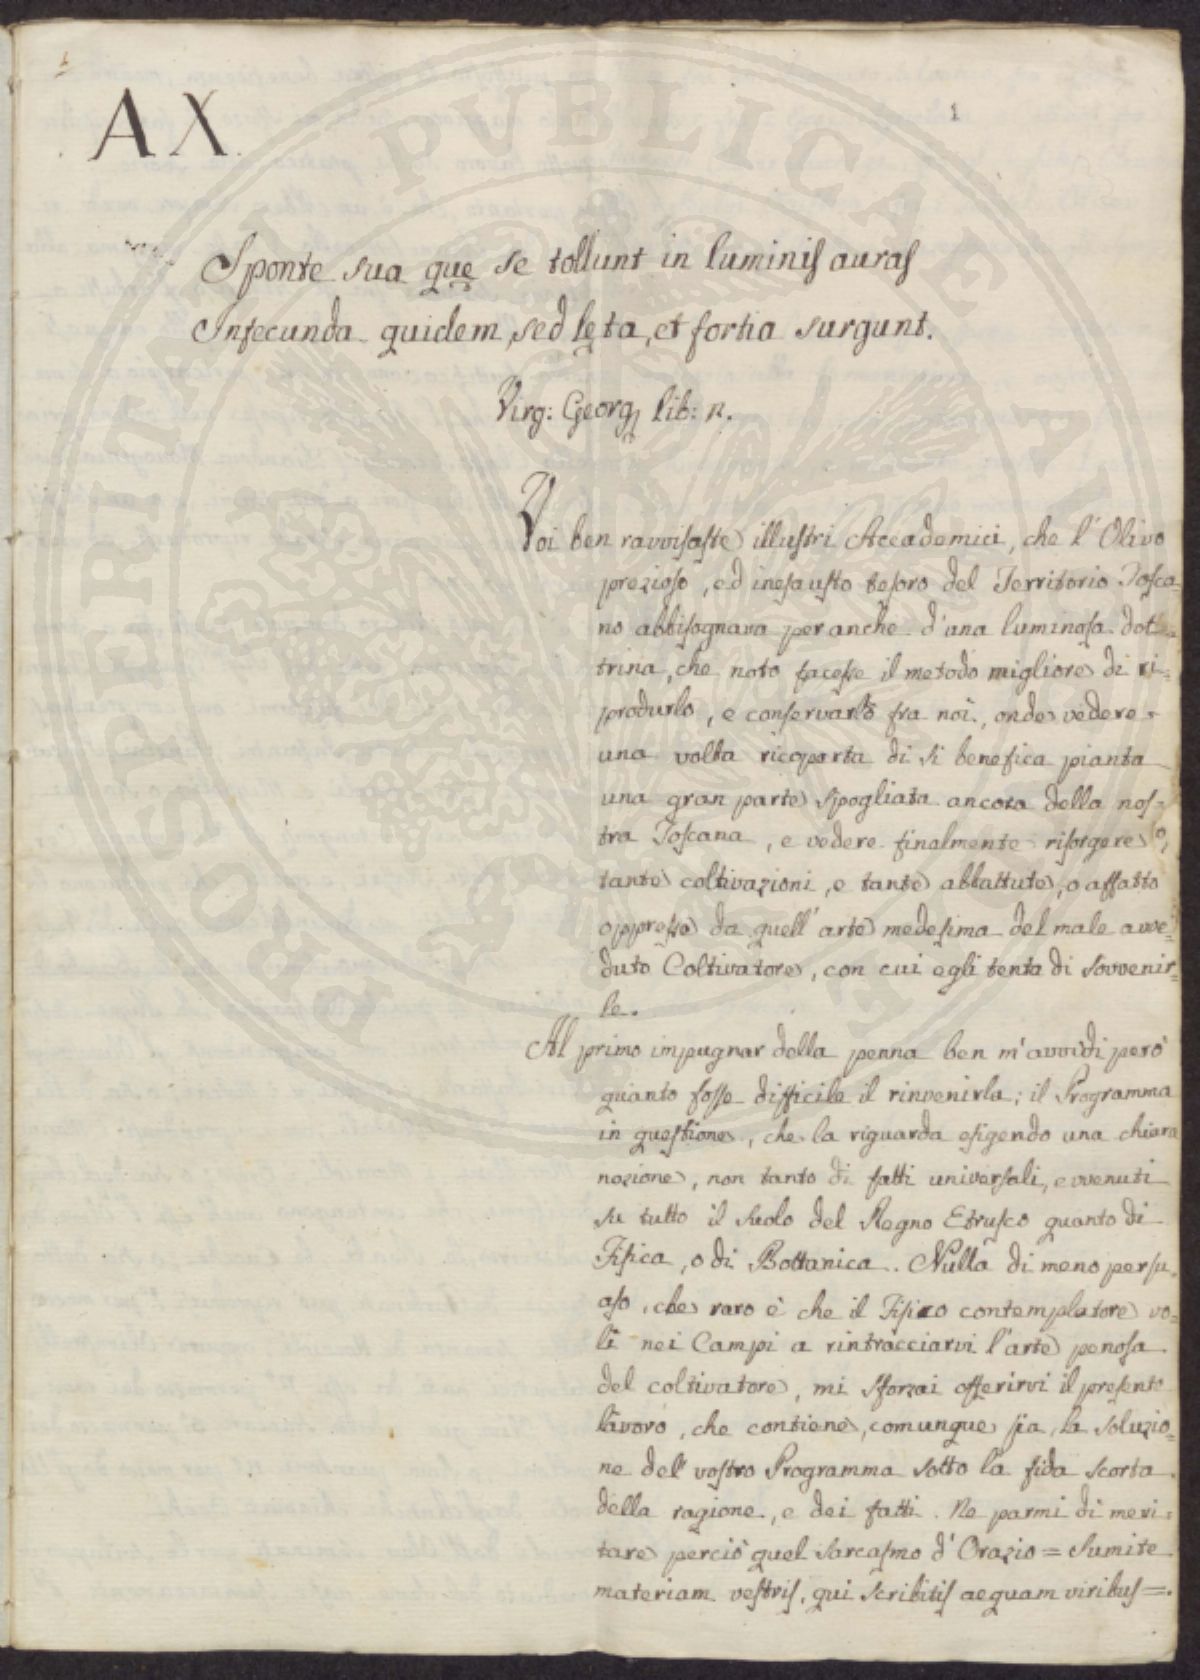 1
AX.
Sponte sua quę se tollunt in luminis auras
Infecunda quidem, sed lęta, et fortia surgunt.
Virg: Georg lib: II.
Voi ben ravvisaste illustri Accademici, che l'Olivo
prezioso, ed inesausto tesoro del Territorio Tosca=
no abbisognava per anche d'una luminosa dot=
trina, che noto facesse il metodo migliore di ri=
produrlo, e conservarlo fra noi, onde vedere
una volta ricoperta di si benefica pianta
una gran parte spogliata ancora della nos=
tra Toscana, e vedere finalmente risorgere
tante coltivazioni, e tante abbattute, o affatto
oppresse da quell'arte medesima del male avve=
duto Coltivatore, con cui egli tenta di sovvenir=
le.
Al primo impugnar della penna ben m'avvidi però
quanto fosse difficile il rinvenirla; il Programma
in questione, che la riguarda esigendo una chiara
nozione, non tanto di fatti universali, e vvenuti
su tutto il suolo del Regno Etrusco quanto di
Fisica, o di Bottanica. Nulla di meno persu=
aso, che raro è che il Fisico contemplatore vo=
li nei Campi a rintracciarvi l'arte penosa
del coltivatore, mi sforzai offerirvi il presente
lavoro, che contiene, comunque sia, la soluzio=
ne del vostro Programma sotto la fida scorta
della ragione, e dei fatti. Ne parmi di meri=
tare perciò quel sarcasmo d'Orazio = Sumite
materiam vestris, qui scribitis aequam viribus =.
PROSPERITATI PUBLICAE AUGENDAE